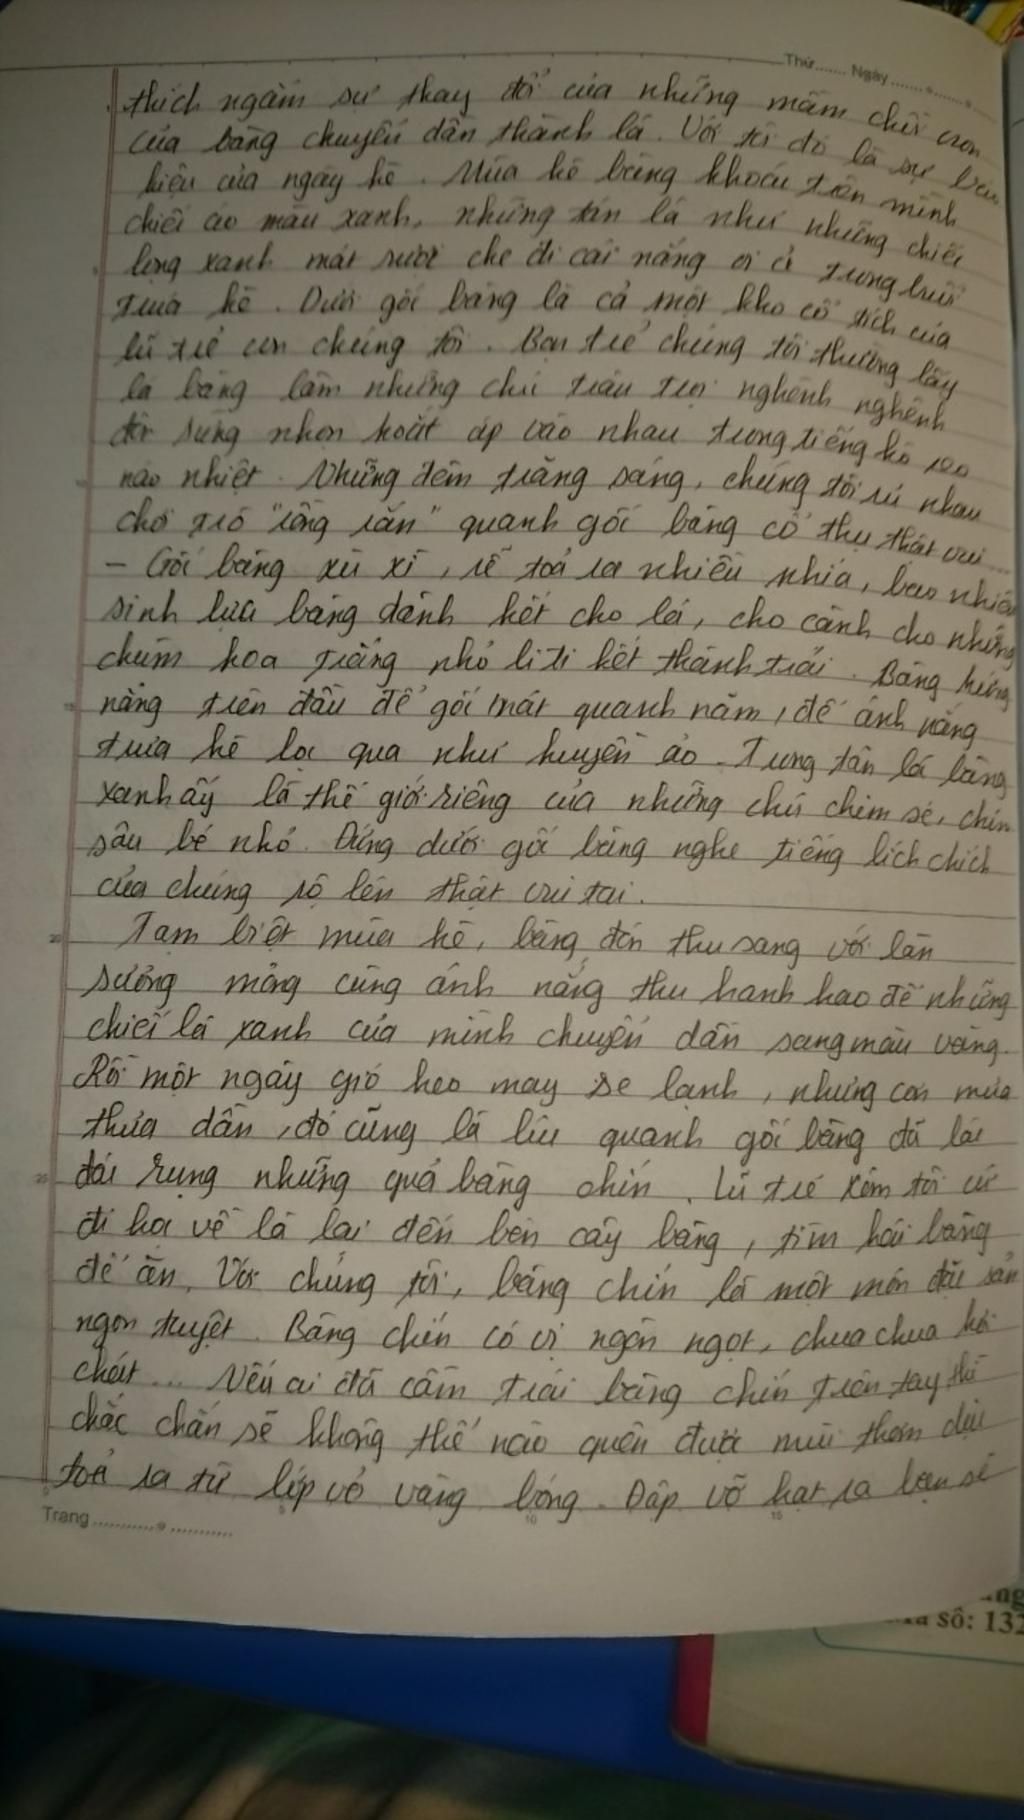 Thứ...... Ngày..............
thích ngắm sự thay đổi của những mầm chồi non
của bàng chuyển dần thành lá. Với tôi đó là sự báo
hiệu của ngày hè. Mùa hè bàng khoác trên mình
chiếc áo màu xanh, những tán lá như những chiếc
lọng xanh mát rượi che đi cái nắng oi ả trong buổi
trưa hè. Dưới gốc bàng là cả một kho cổ tích của
lũ trẻ con chúng tôi. Bọn trẻ chúng tôi thường lấy
lá bàng làm những chú trâu trọi nghênh nghênh
đôi sừng nhọn hoắt áp vào nhau trong tiếng hò reo
náo nhiệt. Những đêm trăng sáng, chúng tôi rủ nhau
chơi trò "rồng rắn" quanh gốc bàng cổ thụ thật vui...
- Gốc bàng xù xì, rễ toả ra nhiều phía, bao nhiêu
sinh lực bàng dành hết cho lá, cho cành cho những
chùm hoa trắng nhỏ li ti kết thành trái. Bàng hứng
nắng trên đầu để gốc mát quanh năm, để ánh nắng
trưa hè lọc qua như huyền ảo. Trong tán lá bàng
xanh ấy là thế giới riêng của những chú chim sẻ, chim
sâu bé nhỏ. Đứng dưới gốc bàng nghe tiếng lích chích
của chúng rộ lên thật vui tai.
Tạm biệt mùa hè, bàng đón thu sang với làn
sương mỏng cùng ánh nắng thu hanh hao để những
chiếc lá xanh của mình chuyển dần sang màu vàng.
Rồi một ngày gió heo may se lạnh, những cơn mưa
thưa dần, đó cũng là lúc quanh gốc bàng đã lác
đác rụng những quả bàng chín. Lũ trẻ xóm tôi cứ
đi học về là lại đến bên cây bàng, tìm hái bàng
để ăn. Với chúng tôi, bàng chín là một món đặc sản
ngon tuyệt. Bàng chín có vị ngòn ngọt, chua chua hơi
chát... Nếu ai đã cầm trái bàng chín trên tay thì
chắc chắn sẽ không thể nào quên được mùi thơm dịu
toả ra từ lớp vỏ vàng bóng. Đập vỡ hạt ra bạn sẽ
Trang..............
số: 132